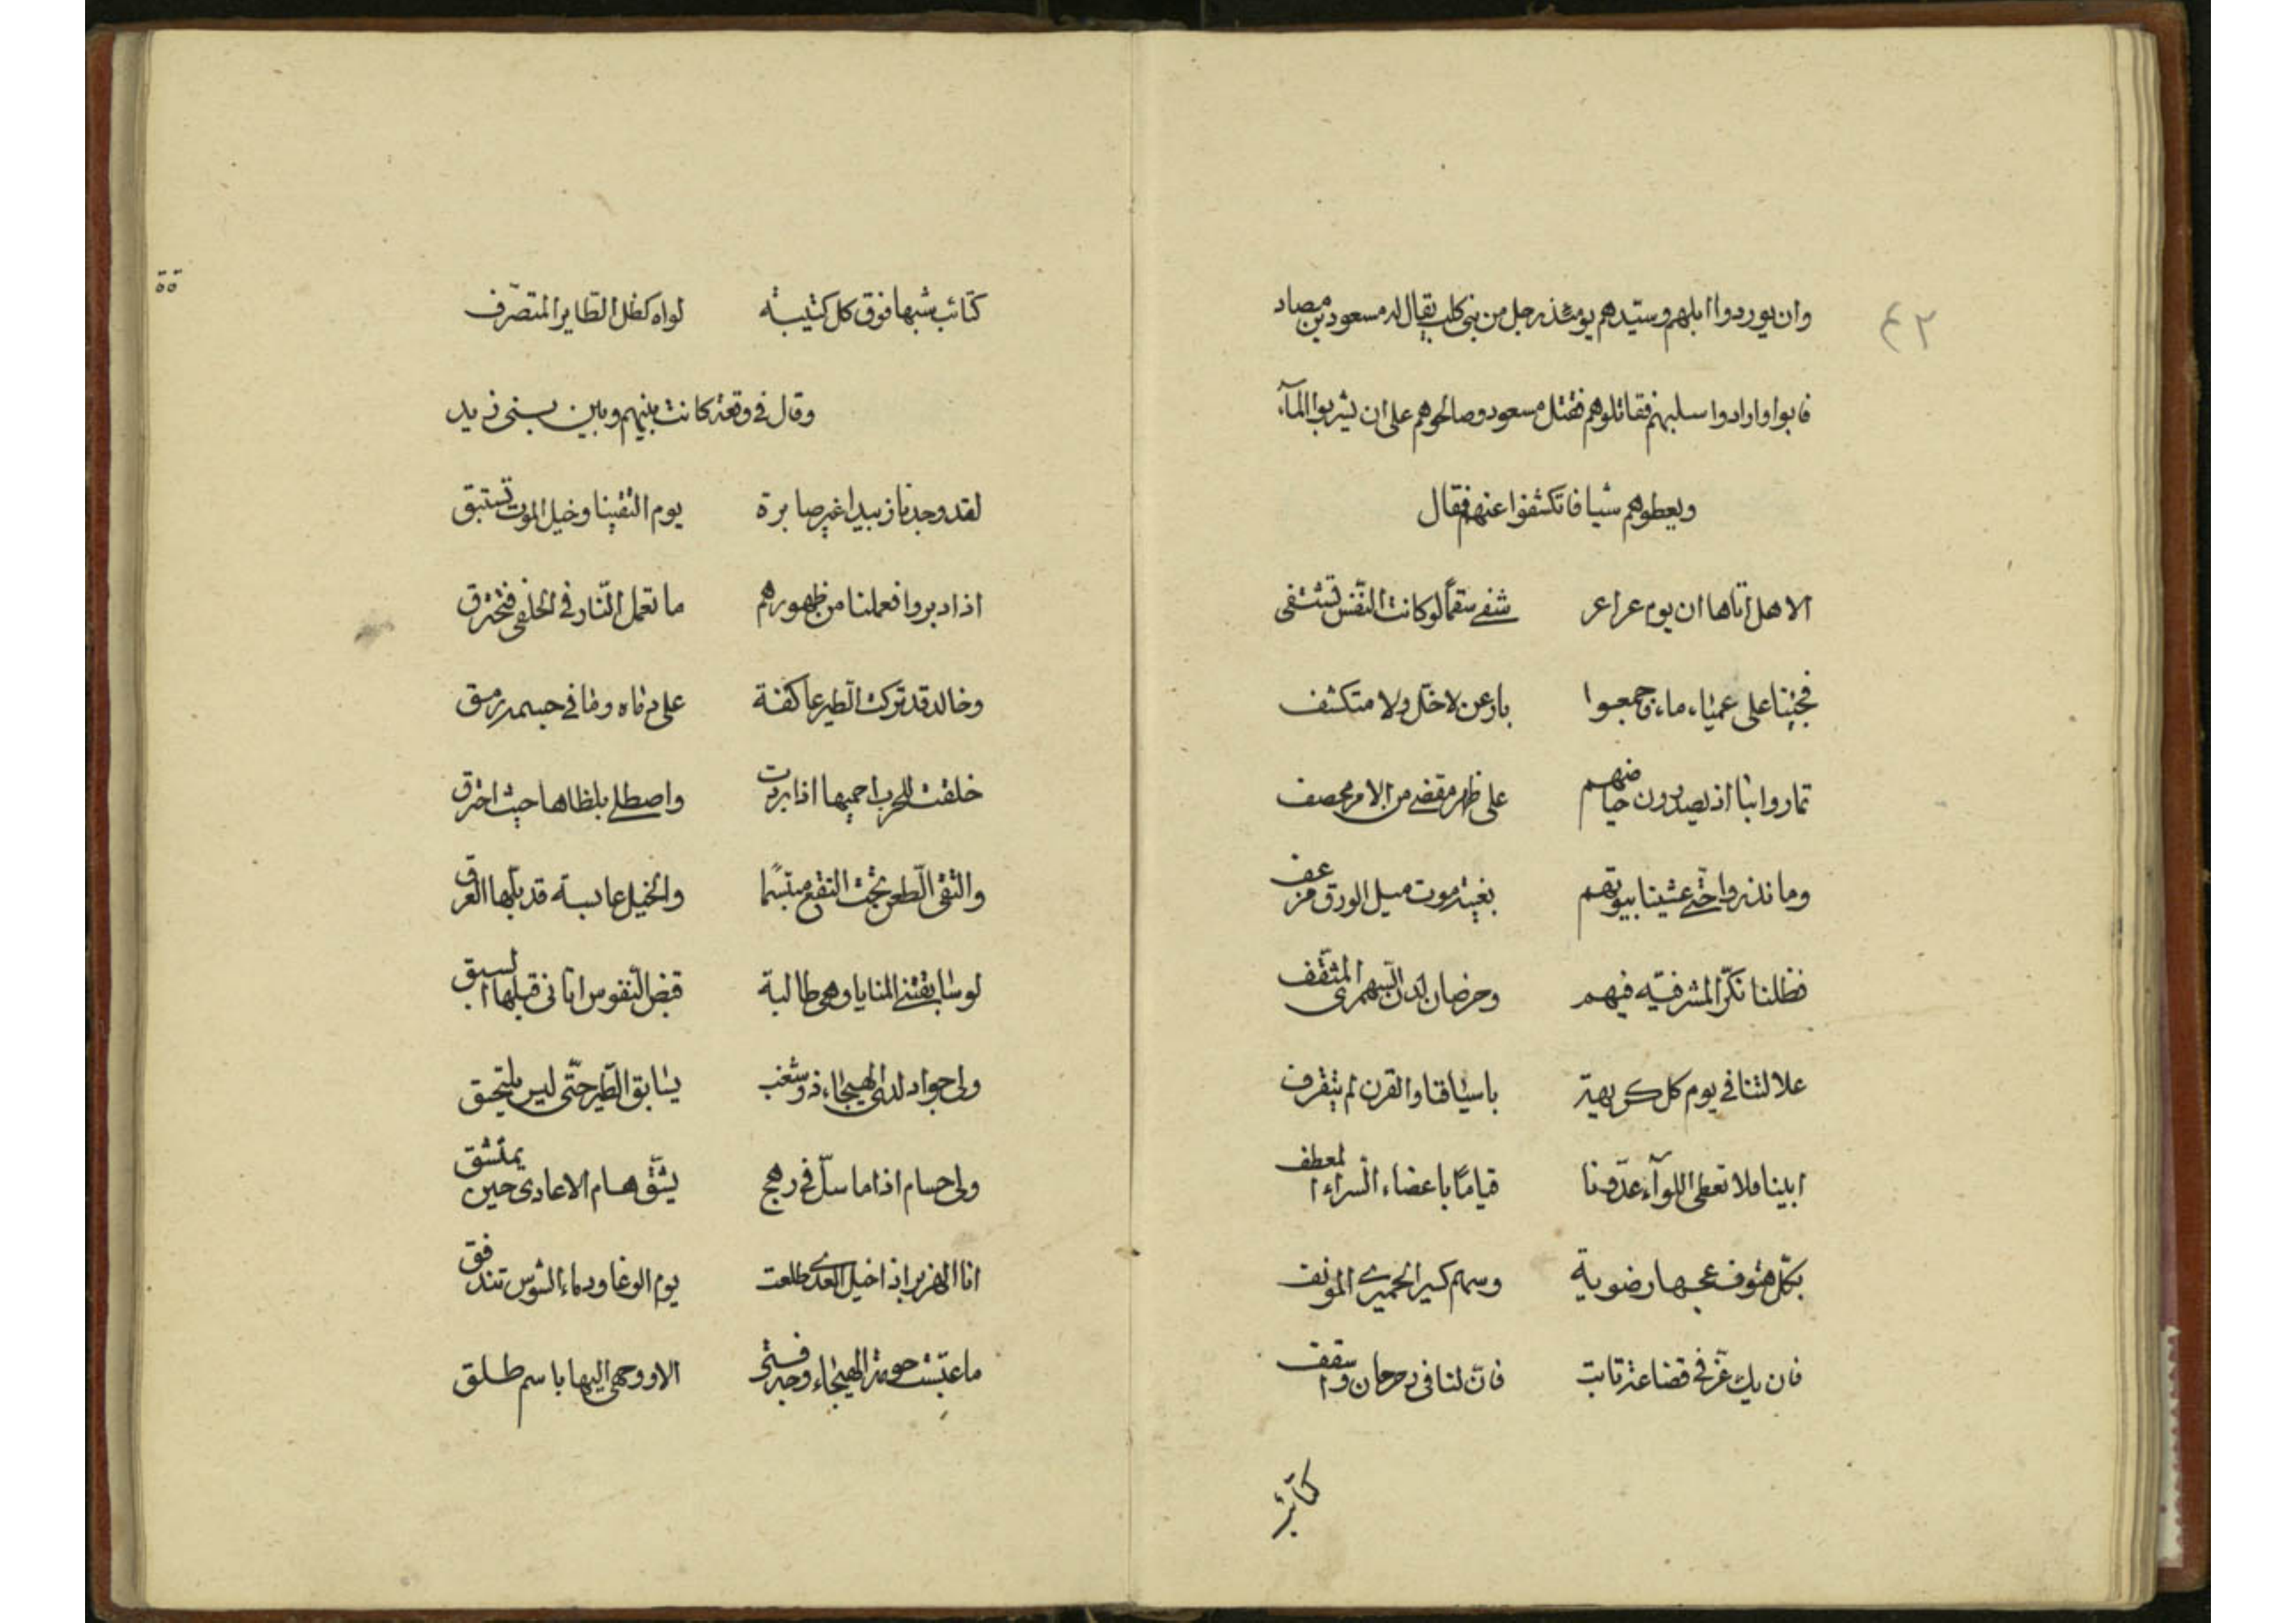 ٤٢
وان يوردوا ابلهم وسيّدهم يومئذ رجل من بني كلب يقال له مسعود بن مصاد
فابوا وارادوا سلبهم فقاتلوهم فقتل مسعود وصالحوهم على ان يشربوا المآء
ويعطوهم شيا فاتكشفوا عنهم فقال
الا هل اتاها ان يوم عراعر شفى سقمًا لو كانت النّفس تشتفى
فجئنا على عمياء ما جمعوا بارعن لا خلّ ولا متكشف
تماروا بنا اذ يصدرون حياضهم على ظهر مقضى من الامر محصف
وما نذروا حتّى غشينا بيوتهم بغيبة موت مسبل الودق مزعف
فظلنا نكرّ المشرفيّه فيهم وخرصان لدن السّمهرى المثقّف
علالتنا فى يوم كل كريهة باسيافنا والقرن لم يتقرف
ابينا فلا نعطى اللوآء عدّونا قيامًا باعضاء السّراء المعطف
بكلّ هتوف عجسها رضوية وسهم كسير الحميرى المؤنف
فان يك عزّ فى قضاعة ثابت فانّ لنا فى رحرحان واسقف
كتائب
كتائب شبها فوق كل كتيبة لواء كظل الطّاير المتصرّف
وقال فى وقعة كانت بينهم وبين بنى زبيد
لقد وجدنا زبيدا غير صابرة يوم التقينا وخيل الموت تستبق
اذ ادبروا فعملنا من ظهورهم ما تعمل النّار فى الحلفى فتحترق
وخالد قد تركت الطّير عاكفة على دماه وما فى جسمه رمق
خلقت للحرب احميها اذا بردت واصطلى بلظاها حيث احترق
والتقى الطّعن تحت النقع مبتسّمًا والخيل عابسة قد بلّها العرق
لو سابقتنى المنايا وهى طالبة قبض النّفوس اتانى قبلها السبق
ولى جواد لدى الهيجاء ذو شغب يسابق الطّير حتّى ليس يلتحق
ولى حسام اذا ما سلّ فى رهج يشقّ هام الاعادى حين يمتشق
انا الهزبر اذا خيل العدى طلعت يوم الوغا ودماء الشّوس تندفق
ما عبّست حومة الهيجاء وجه فتى الا ووجهى اليها باسم طلق